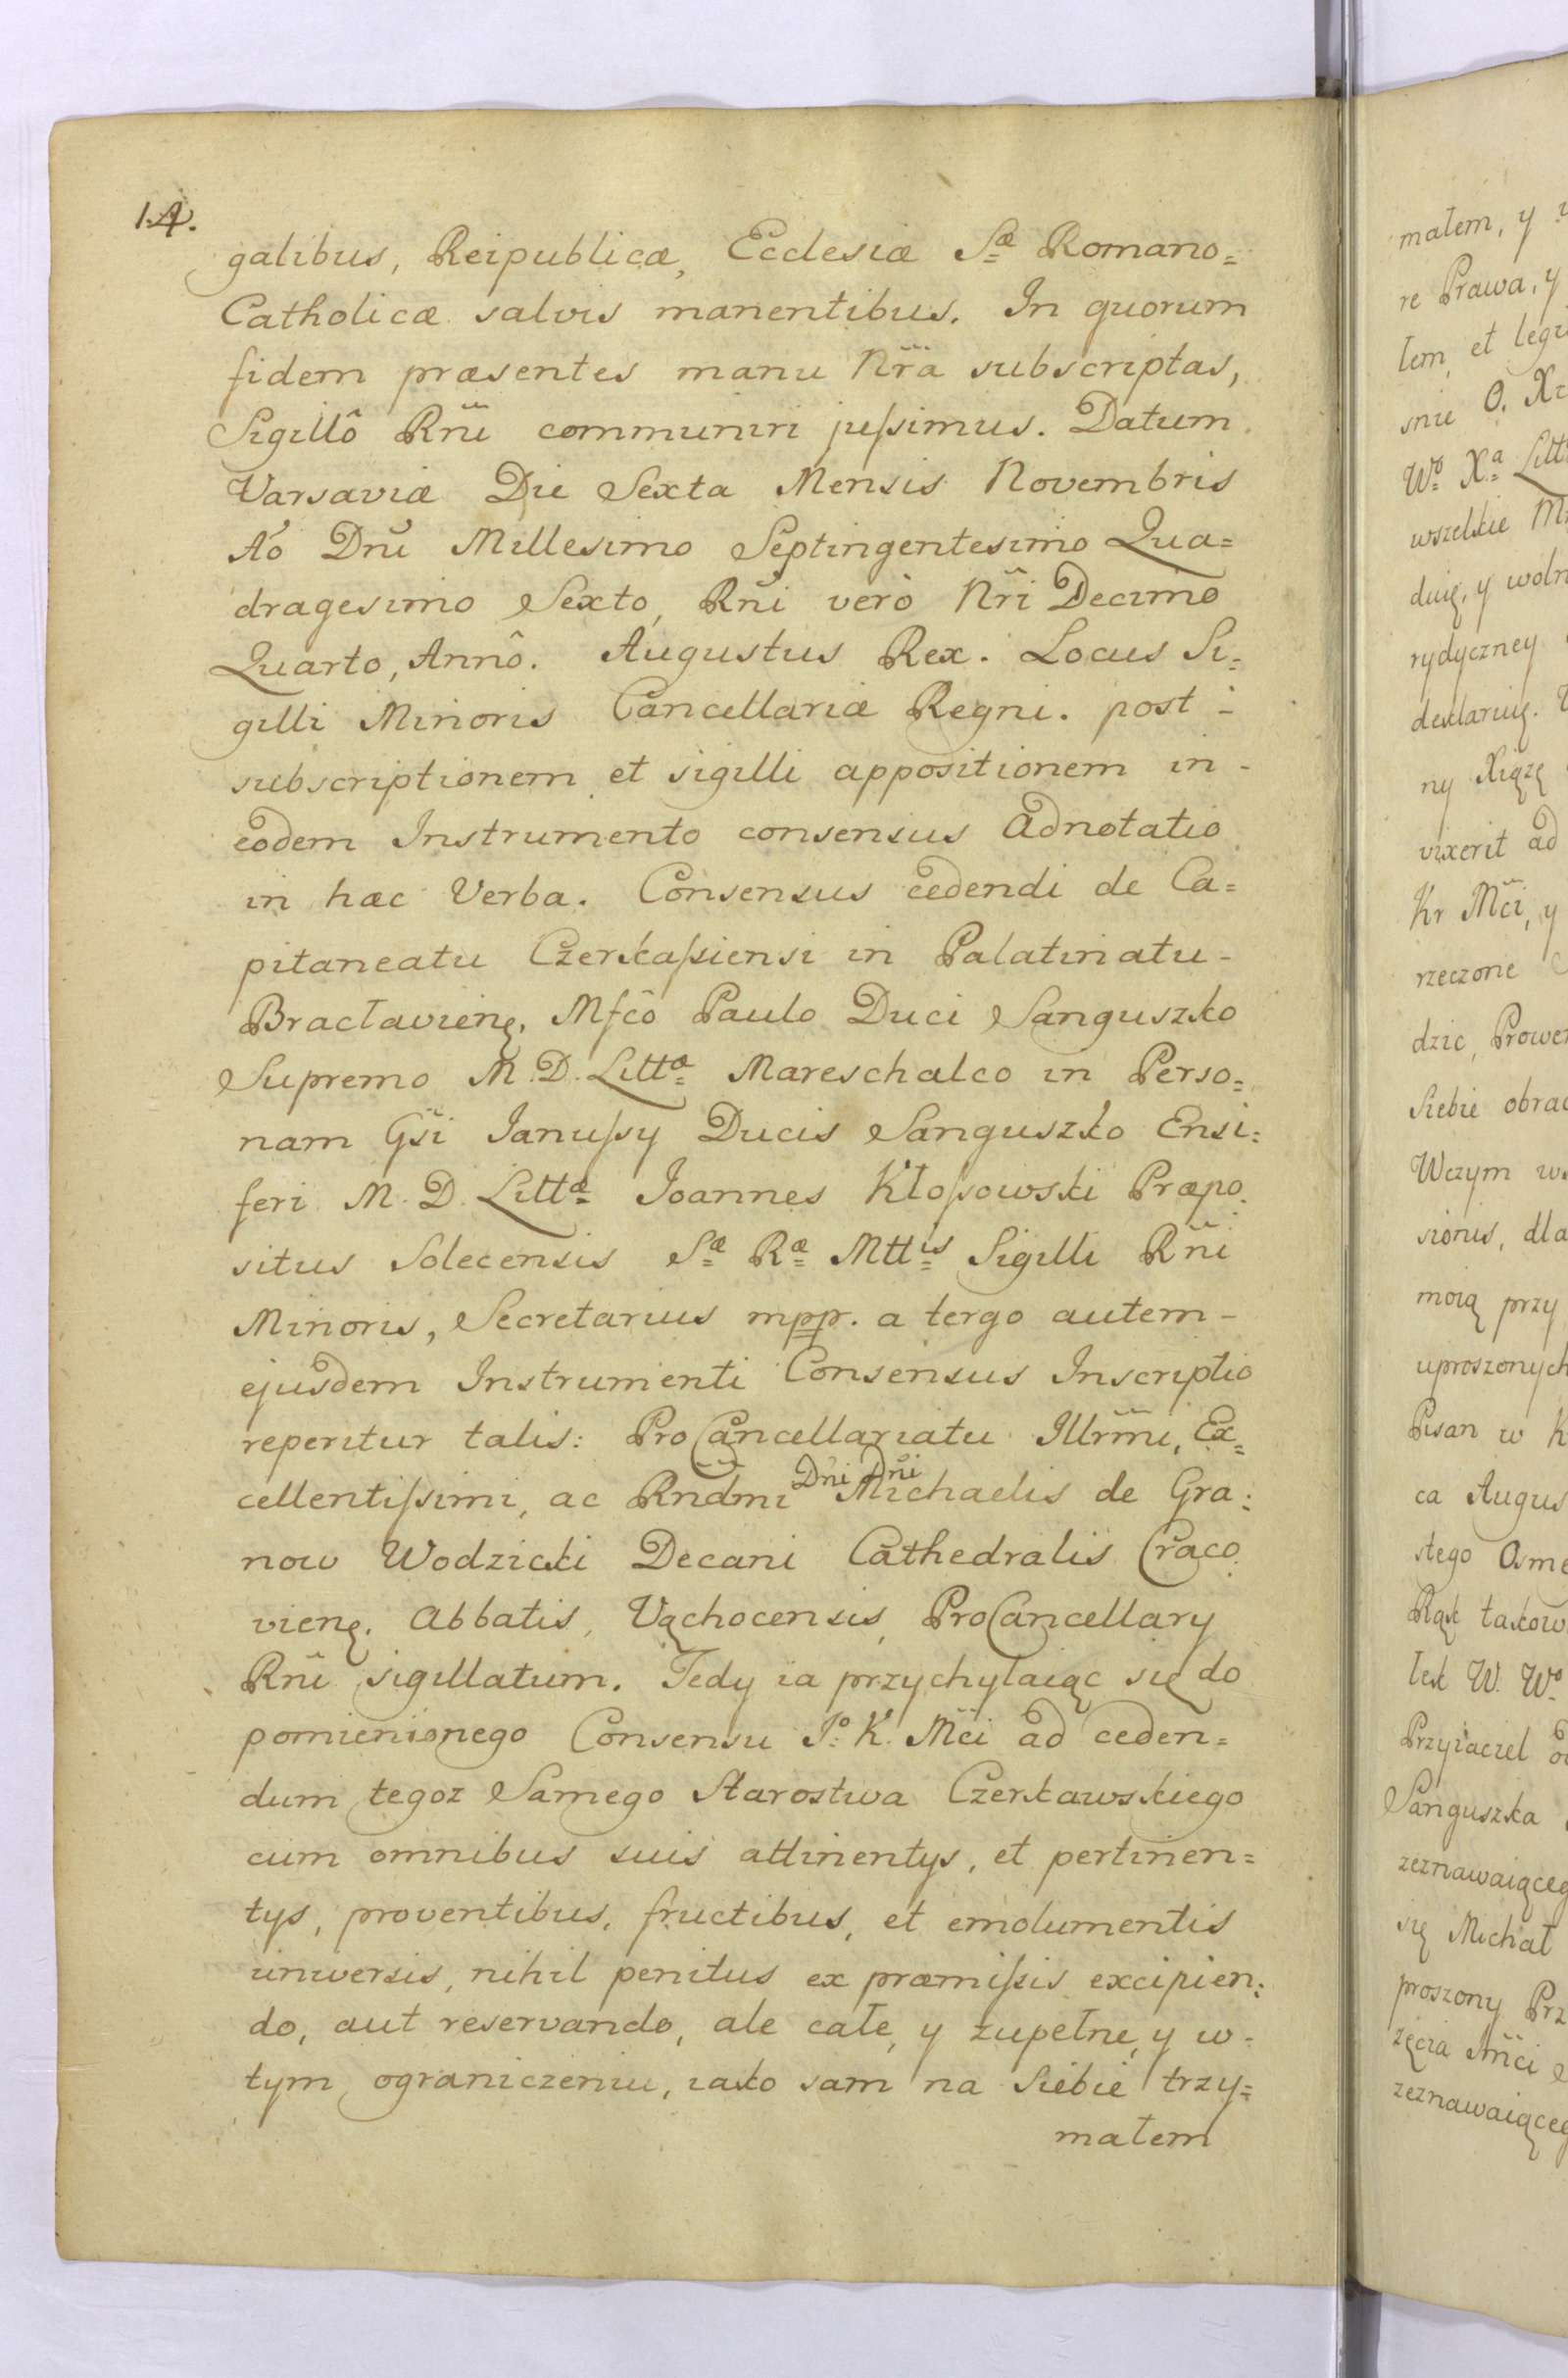 14.
galibus, Reipublicæ, Ecclesiæ Sæ Romano=
Catholicæ salvis manentibus. In quorum
fidem præsentes manu Nr̃a subscriptas,
Sigillô Rñi communiri jussimus. Datum
Varsaviæ Die Sexta Mensis Novembris
Aõ Dnĩ Millesimo Septingentesimo Qua=
dragesimo Sexto, Rñi verò Nr̃i Decimo
Quarto, Annô. Augustus Rex. Locus Si=
gilli Minoris Cancellariæ Regni. post -
subscriptionem et sigilli appositionem in -
eodem Instrumento consensus Adnotatio
in hæc Verba. Consensus cedendi de Ca=
pitaneatu Czerkassiensi in Palatinatu -
Bracłavienę. Mfcô Paulo Duci Sanguszko
Supremo M. D. Littæ Mareschalco in Perso=
nam Gs̃i Ianussy Ducis Sanguszko Ensi=
feri M. D. Littæ Joannes Kłossowski Præpo=
situs Solecensis Sæ Ræ Mttis Sigilli Rñi
Minoris, Secretarius mpp. a tergo autem -
ejusdem Instrumenti Consensus Inscriptio
reperitur talis: ProCancellariatu Illrm̃i, Ex=
cellentissimi, ac Rndmi Dñi Dñi Michaelis de Gra=
now Wodzicki Decani Cathedralis Craco=
vienę. Abbatis, Vąchocensis, ProCancellary
Rñi sigillatum. Tedy ia przychylaiąc się do
pomienionego Consensu Jo: K. Mc̃i ad ceden=
dum tegoz Samego Starostwa Czerkawskiego
cum omnibus suis attinentys, et pertinen=
tys, proventibus, fructibus, et emolumentis
universis, nihil penitus ex præmissis excipien=
do, aut reservando, ale całe, y zupełne, y w -
tym ograniczeniu, iako sam na Siebie trzy=
małem
małem, y
re Prawa, y
łem, et legi
snie O. Xc
Wo Xa Litt
wszelkie M
duię, y woln
rydyczney
deklaruię.
ny Xiązę
vixerit ad
Kr Mc̃i, y
rzeczone
dzic, Prowe
Siebie obrac
Wczym ws
sionis, dla
moią przy
uproszonych
Pisan w K
ca Augus
stego Osme
Rąk łaskow
łek W. Wo
Przyiaciel
Sanguszka
zeznawaiąceg
się Michał
proszony Prz
zęcia Jmc̃i
zeznawaiąceg